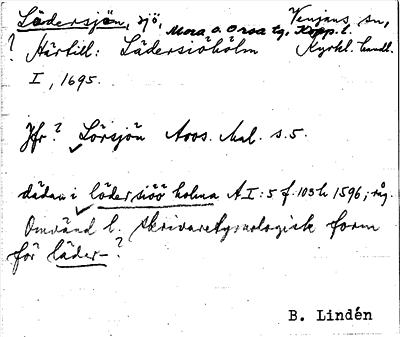 Lädersjön, sjö, Venjans sn,
Mora o. Orsa tg, Kopp. l.
? Härtill: Lädersiöholm Kyrkl. handl.
I, 1695.
Jfr? Lörsjön Aoos. Mal. s.5.
dädan i lödersiöö holma A I: 5 f. 103 h 1596; råg.
Omvänd l. skrivaretymologisk form
för läder-?
B. Lindén